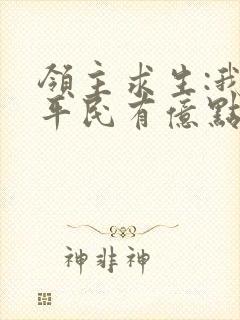 領主求生:我
平民有億點
神非神